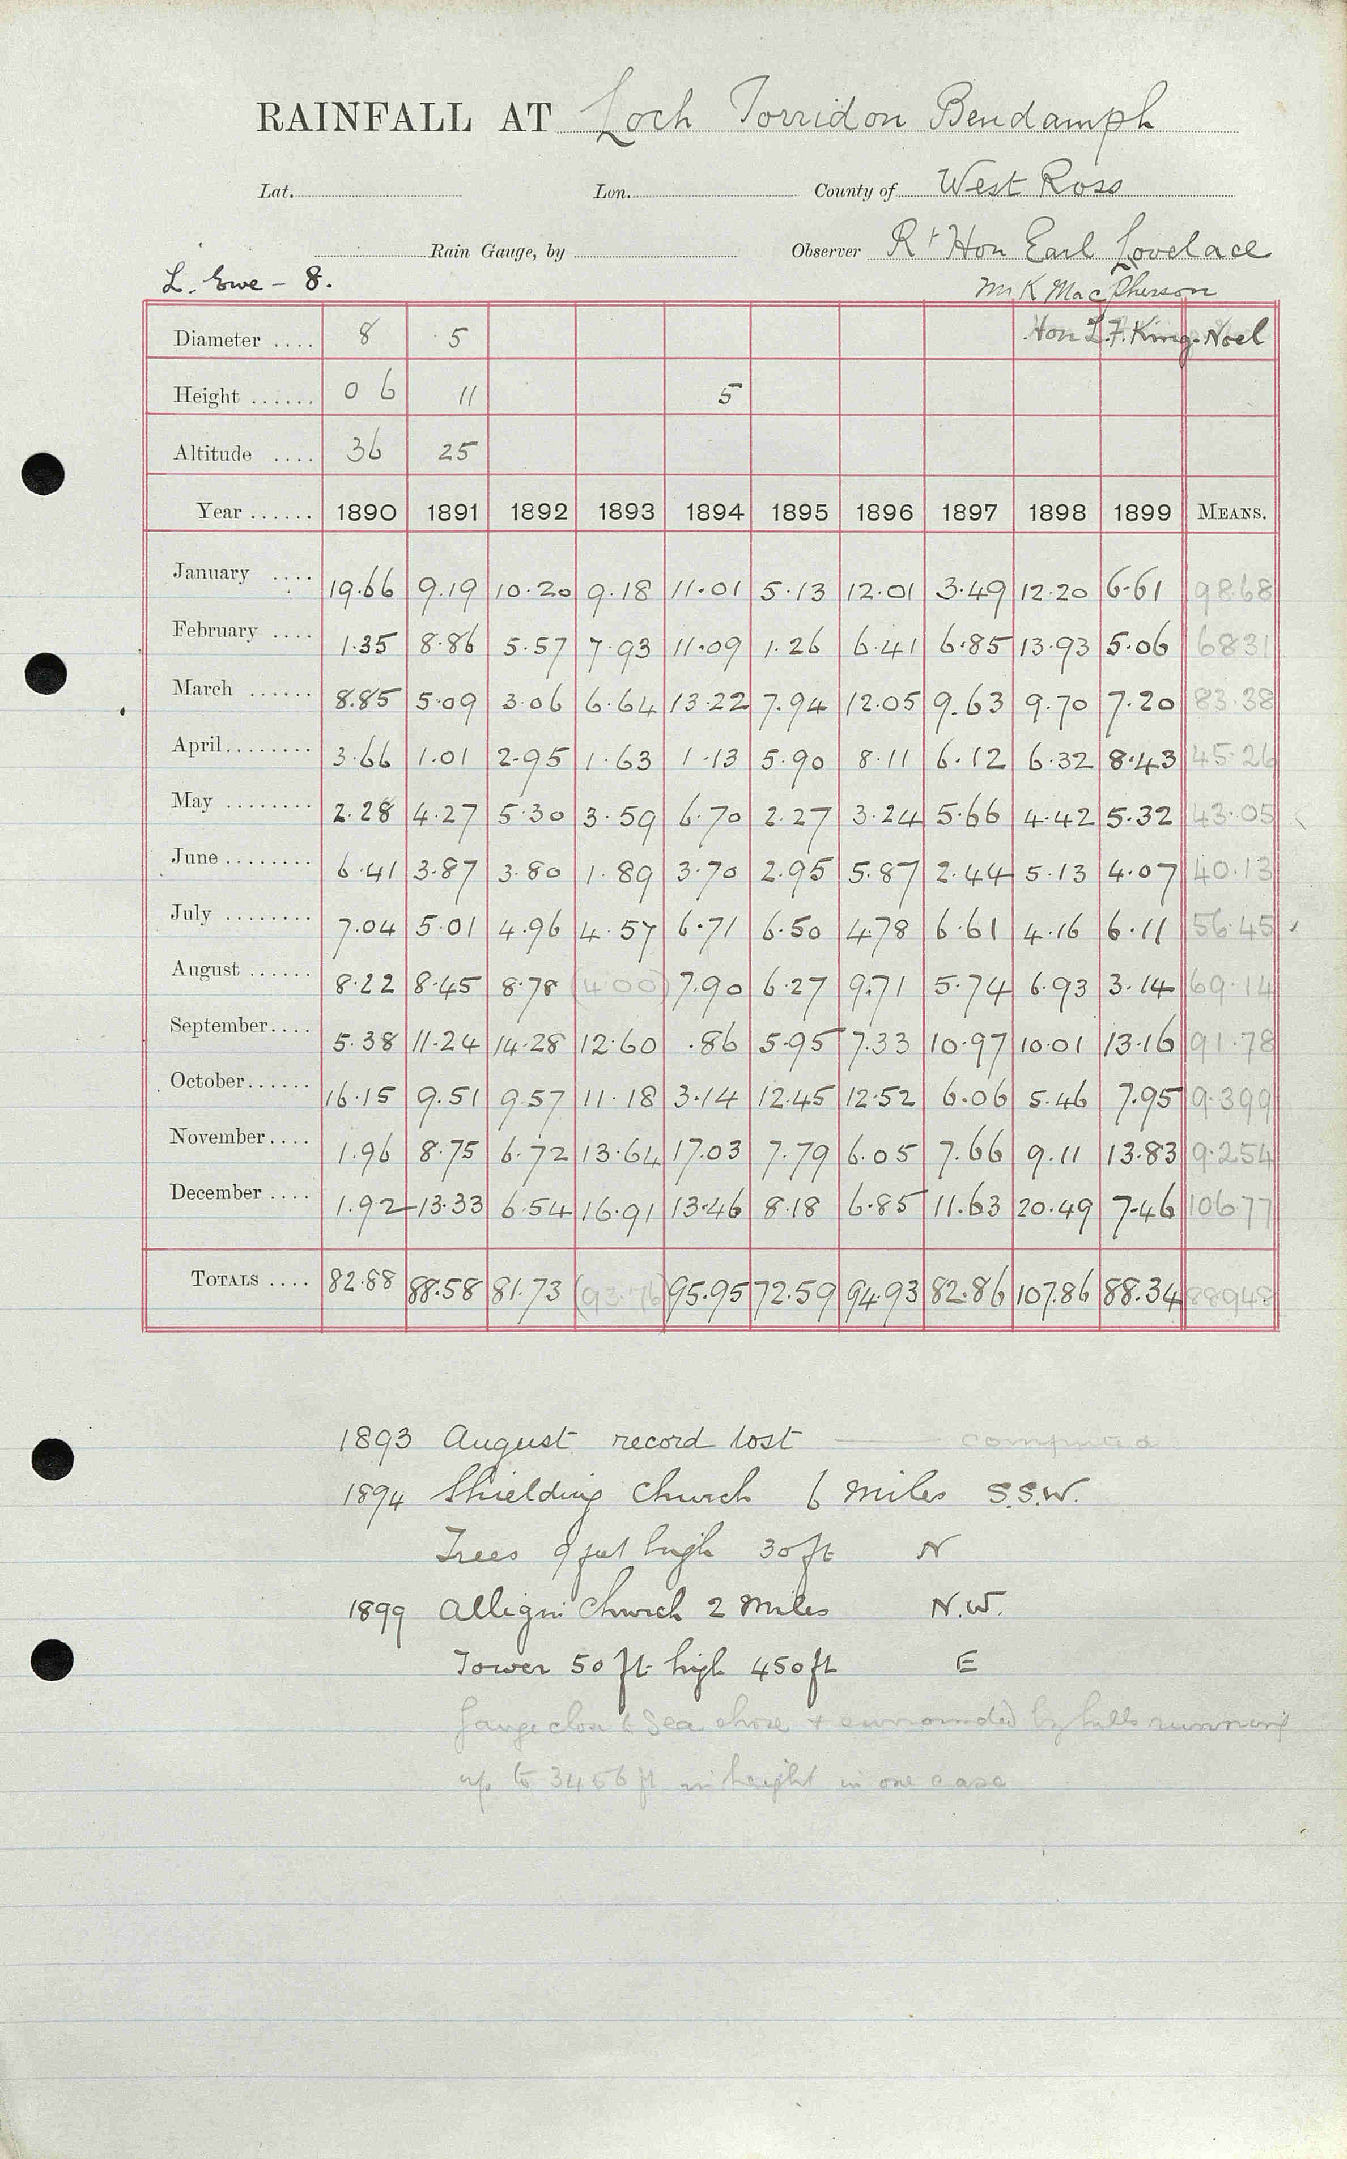 RAINFALL AT Loch Torridon Bendamph
Lat. Lon. County of West Ross
Rain Gauge, by Observer Rt Hon Earl Lovelace
L. Ewe - 8. Mr K MacPherson
Diameter .... 8 5 Hon L.F. King-Noel
Height ...... 0 6 11 5
Altitude .... 36 25
Year ...... 1890 1891 1892 1893 1894 1895 1896 1897 1898 1899 MEANS.
January .... 19.66 9.19 10.20 9.18 11.01 5.13 12.01 3.49 12.20 6.61 98.68
February .... 1.35 8.86 5.57 7.93 11.09 1.26 6.41 6.85 13.93 5.06 6831
March ...... 8.85 5.09 3.06 6.64 13.22 7.94 12.05 9.63 9.70 7.20 83.38
April........ 3.66 1.01 2.95 1.63 1.13 5.90 8.11 6.12 6.32 8.43 45.26
May ........ 2.28 4.27 5.30 3.59 6.70 2.27 3.24 5.66 4.42 5.32 43.05
June ........ 6.41 3.87 3.80 1.89 3.70 2.95 5.87 2.44 5.13 4.07 40.13
July ........ 7.04 5.01 4.96 4.57 6.71 6.50 4.78 6.61 4.16 6.11 56.45
August ...... 8.22 8.45 8.78 (4.00) 7.90 6.27 9.71 5.74 6.93 3.14 69.14
September.... 5.38 11.24 14.28 12.60 .86 5.95 7.33 10.97 10.01 13.16 91.78
October...... 16.15 9.51 9.57 11.18 3.14 12.45 12.52 6.06 5.46 7.95 9.399
November.... 1.96 8.75 6.72 13.64 17.03 7.79 6.05 7.66 9.11 13.83 9.254
December .... 1.92 13.33 6.54 16.91 13.46 8.18 6.85 11.63 20.49 7.46 106.77
TOTALS .... 82.88 88.58 81.73 (93.76) 95.95 72.59 94.93 82.86 107.86 88.34 88948
1893 August record lost —— computed
1894 Shielding Church 6 miles S.S.W.
Trees 9 feet high 30 ft N
1899 Alligin Church 2 miles N.W.
Tower 50 ft high 450 ft E
Gauge close to Sea shore + surrounded by hills running
up to 3456 ft in height in one case